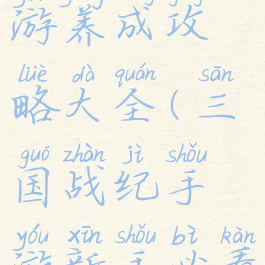 游养成攻
lüè dà quán sān
略大全(三
guó zhàn jì shǒu
国战纪手
yóu xīn shǒu bì kàn
游新手必看